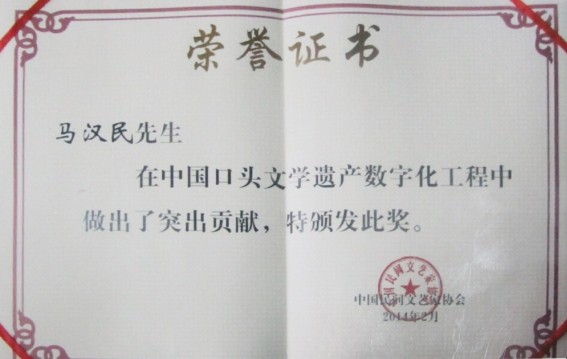 荣誉证书
马汉民先生
在中国口头文学遗产数字化工程中
做出了突出贡献，特颁发此奖。
中国民间文艺家协会
2014年2月